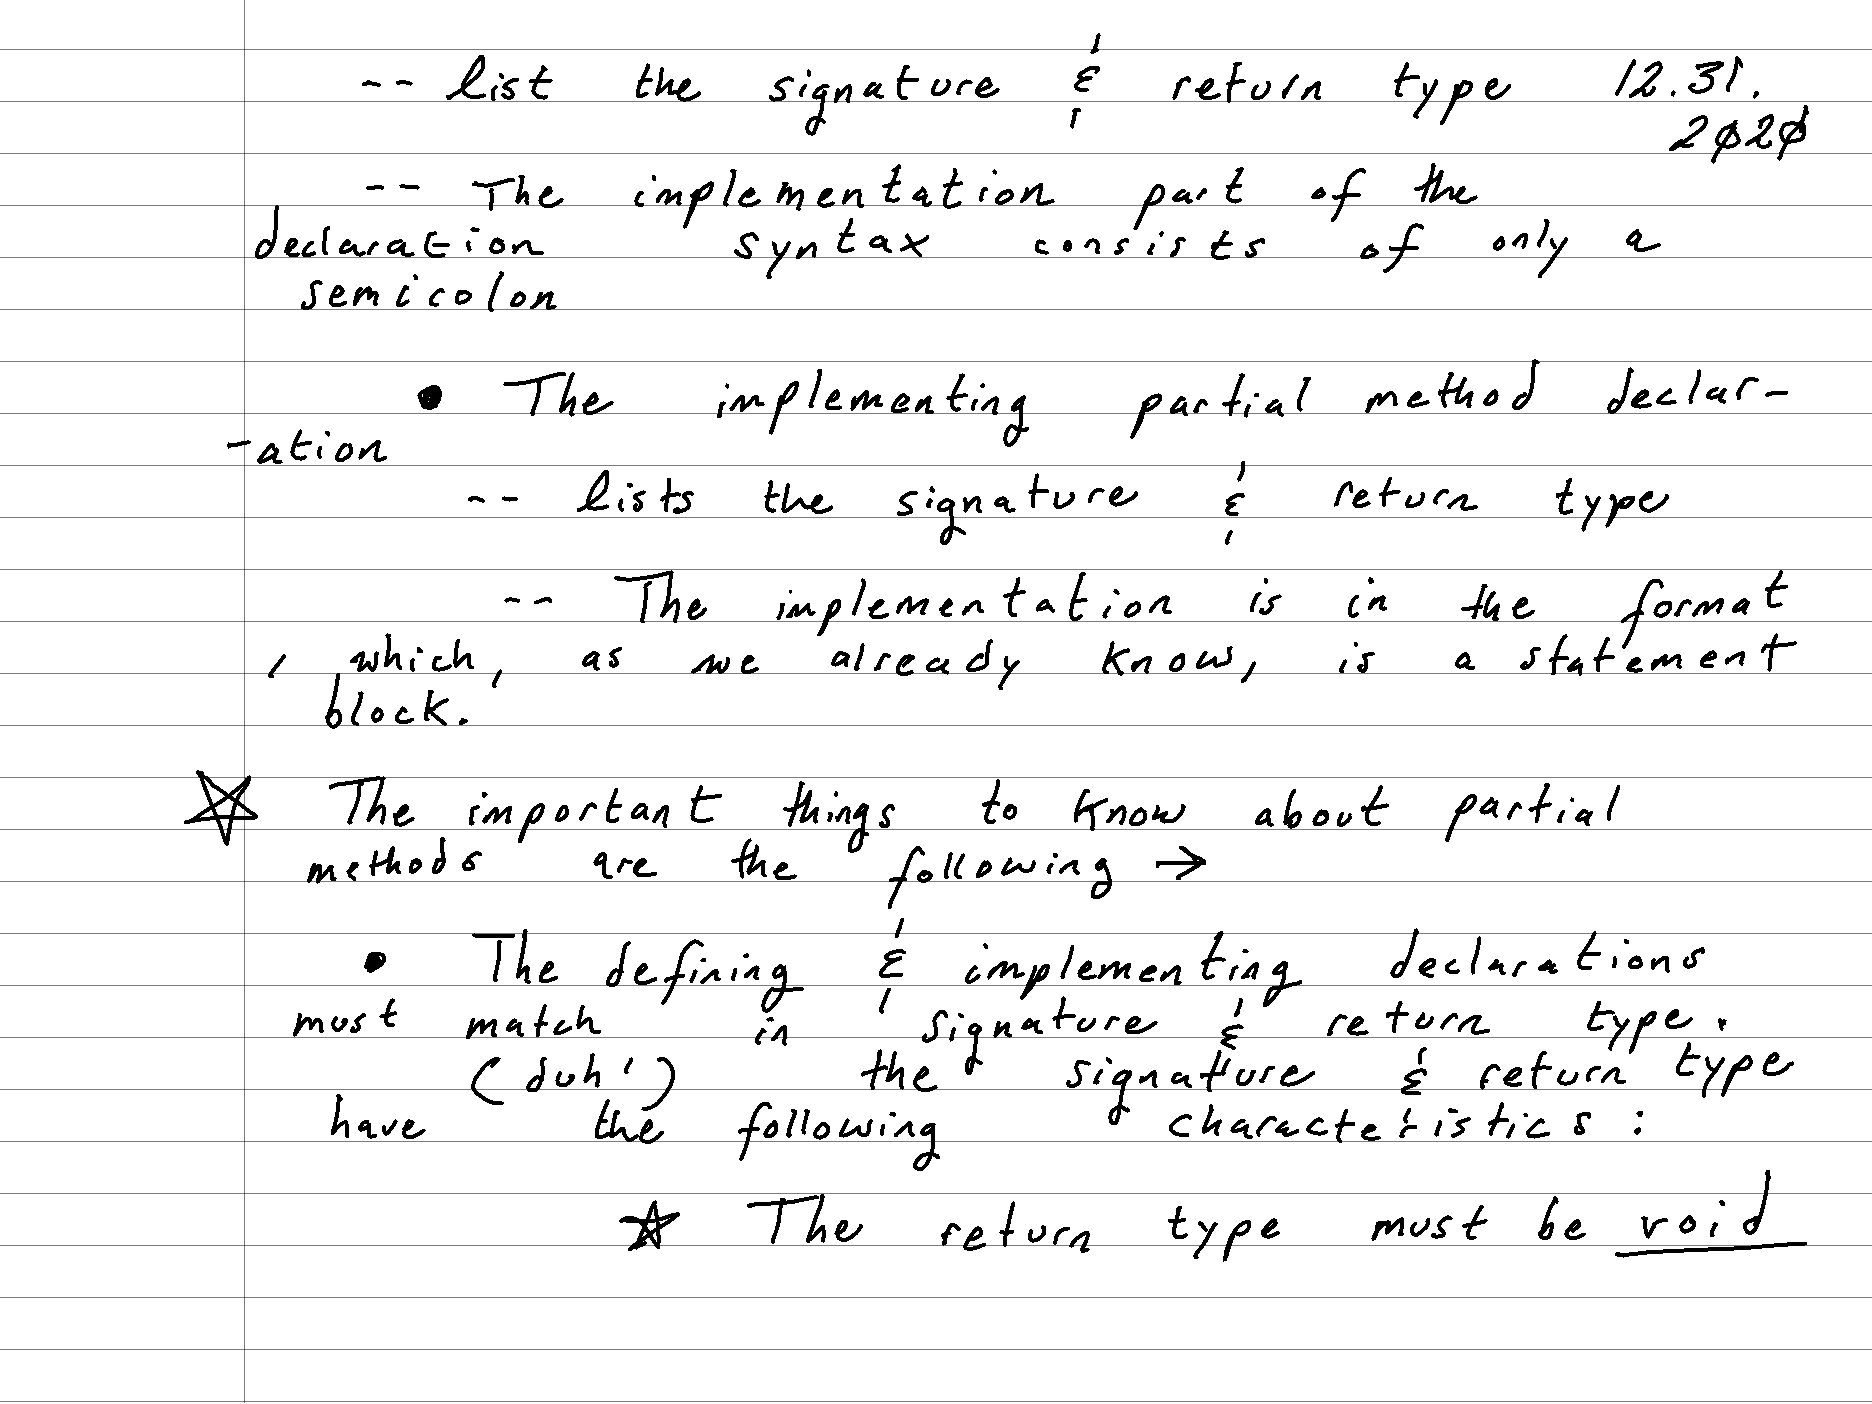 -- list the signature & return type 12.31.
2020
-- The implementation part of the
declaration syntax consists of only a
semicolon
• The implementing partial method declar-
-ation
-- lists the signature & return type
-- The implementation is in the format
, which, as we already know, is a statement
block.
☆ The important things to know about partial
methods are the following →
• The defining & implementing declarations
must match in signature & return type.
(duh') the signature & return type
have the following characteristics :
☆ The return type must be void